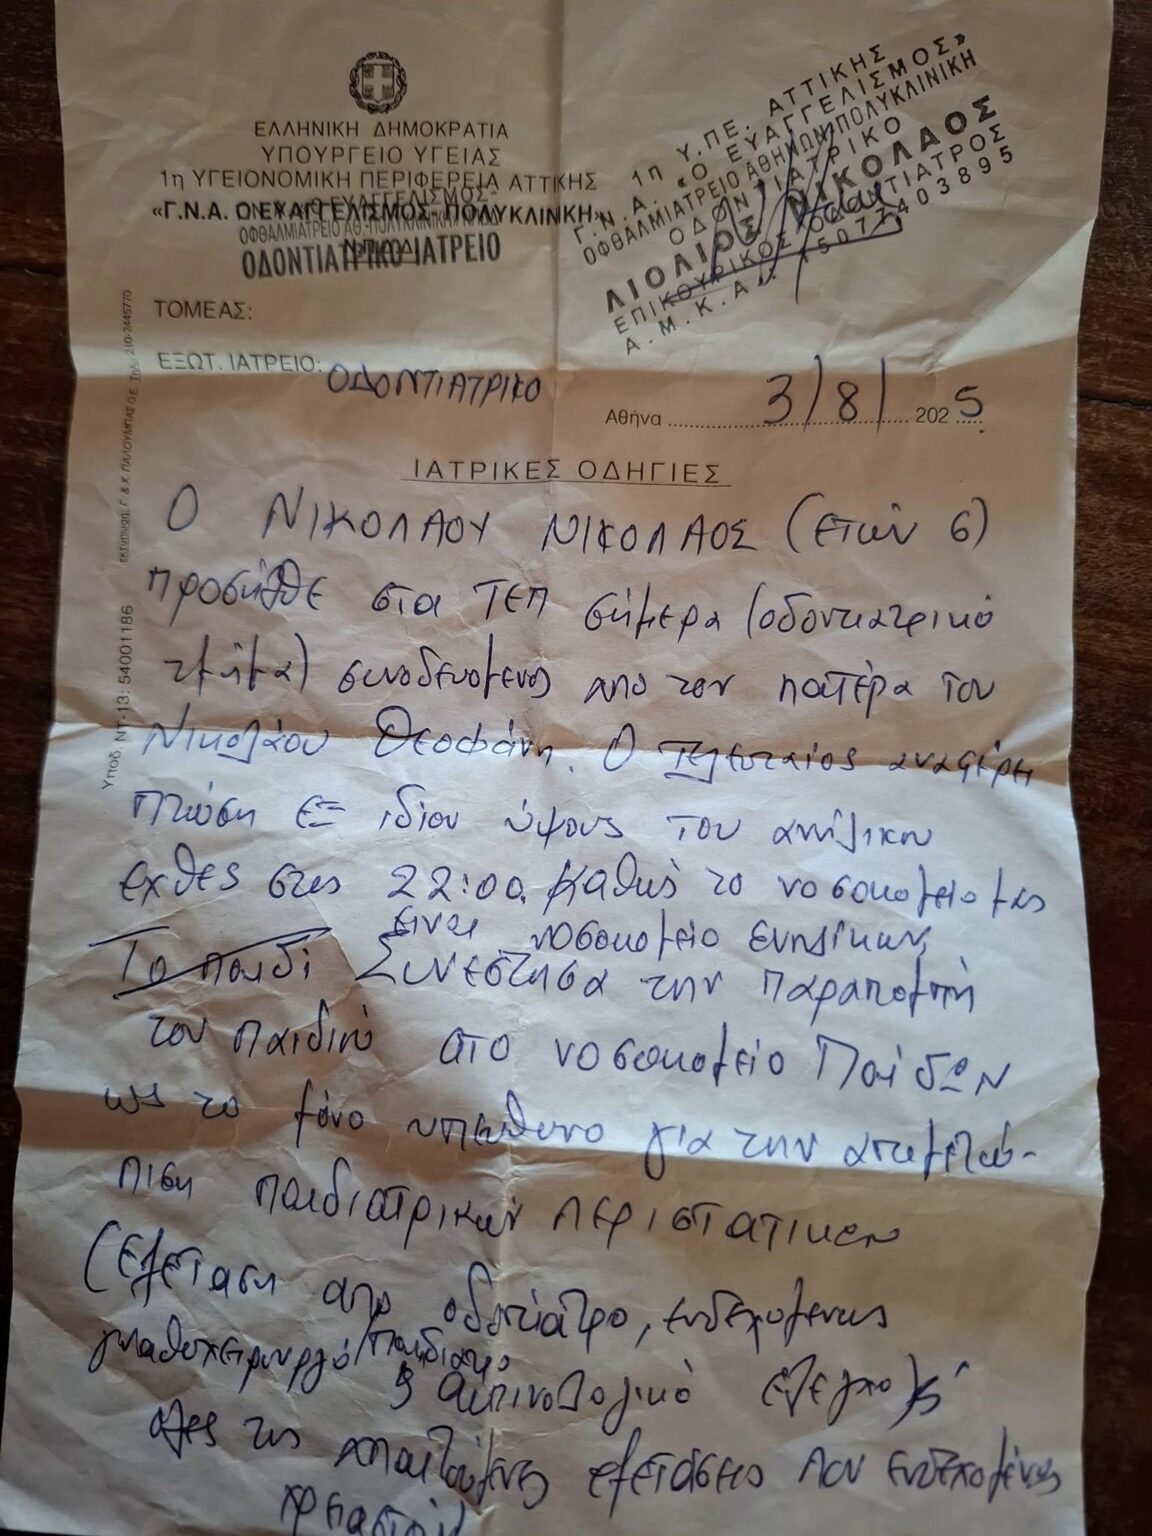 ΕΛΛΗΝΙΚΗ ΔΗΜΟΚΡΑΤΙΑ
ΥΠΟΥΡΓΕΙΟ ΥΓΕΙΑΣ
1η ΥΓΕΙΟΝΟΜΙΚΗ ΠΕΡΙΦΕΡΕΙΑ ΑΤΤΙΚΗΣ
«Γ.Ν.Α. Ο ΕΥΑΓΓΕΛΙΣΜΟΣ- ΠΟΛΥΚΛΙΝΙΚΗ»
ΟΦΘΑΛΜΙΑΤΡΕΙΟ ΑΘ.-ΠΟΛΥΚΛΙΝΙΚΗ
ΟΔΟΝΤΙΑΤΡΙΚΟ ΙΑΤΡΕΙΟ
1η Υ.ΠΕ. ΑΤΤΙΚΗΣ
Γ.Ν.Α. «Ο ΕΥΑΓΓΕΛΙΣΜΟΣ»
ΟΦΘΑΛΜΙΑΤΡΕΙΟ ΑΘΗΝΩΝ ΠΟΛΥΚΛΙΝΙΚΗ
ΟΔΟΝΤΙΑΤΡΙΚΟ
ΛΙΟΛΙΟΣ ΝΙΚΟΛΑΟΣ
ΕΠΙΚΟΥΡΙΚΟΣ ΟΔΟΝΤΙΑΤΡΟΣ
Α.Μ.Κ.Α.: 15077403895
ΤΟΜΕΑΣ:
ΕΞΩΤ. ΙΑΤΡΕΙΟ: ΟΔΟΝΤΙΑΤΡΙΚΟ
Αθήνα 3/8/ 2025
ΙΑΤΡΙΚΕΣ ΟΔΗΓΙΕΣ
Ο ΝΙΚΟΛΑΟΥ ΝΙΚΟΛΑΟΣ (ετών 6)
προσήλθε στα ΤΕΠ σήμερα (οδοντιατρικό
τμήμα) συνοδευόμενος απο τον πατέρα του
Νικολάου Θεοφάνη. Ο τελευταίος αναφέρει
πτώση εξ ιδίου ύψους του ανηλίκου
εχθές στις 22:00. Καθώς το νοσοκομείο μας
είναι νοσοκομείο ενηλίκων,
Το παιδί Συνέστησα την παραπομπή
του παιδιού στο νοσοκομείο Παίδων
ως το μόνο υπεύθυνο για την αντιμετώ-
πιση παιδιατρικών περιστατικών
(εξέταση απο οδοντίατρο, ενδεχομένως
γναθοχειρουργό/παιδίατρο
ακτινολογικό έλεγχο)
όλες τις απαιτούμενες εξετάσεις που ενδεχομένως
Υποδ. ΝΤ-13: 54001186 εκτύπωση: Γ. & Χ. ΠΑΛΟΥΜΠΑΣ Ο.Ε. Τηλ.: 210-3445770